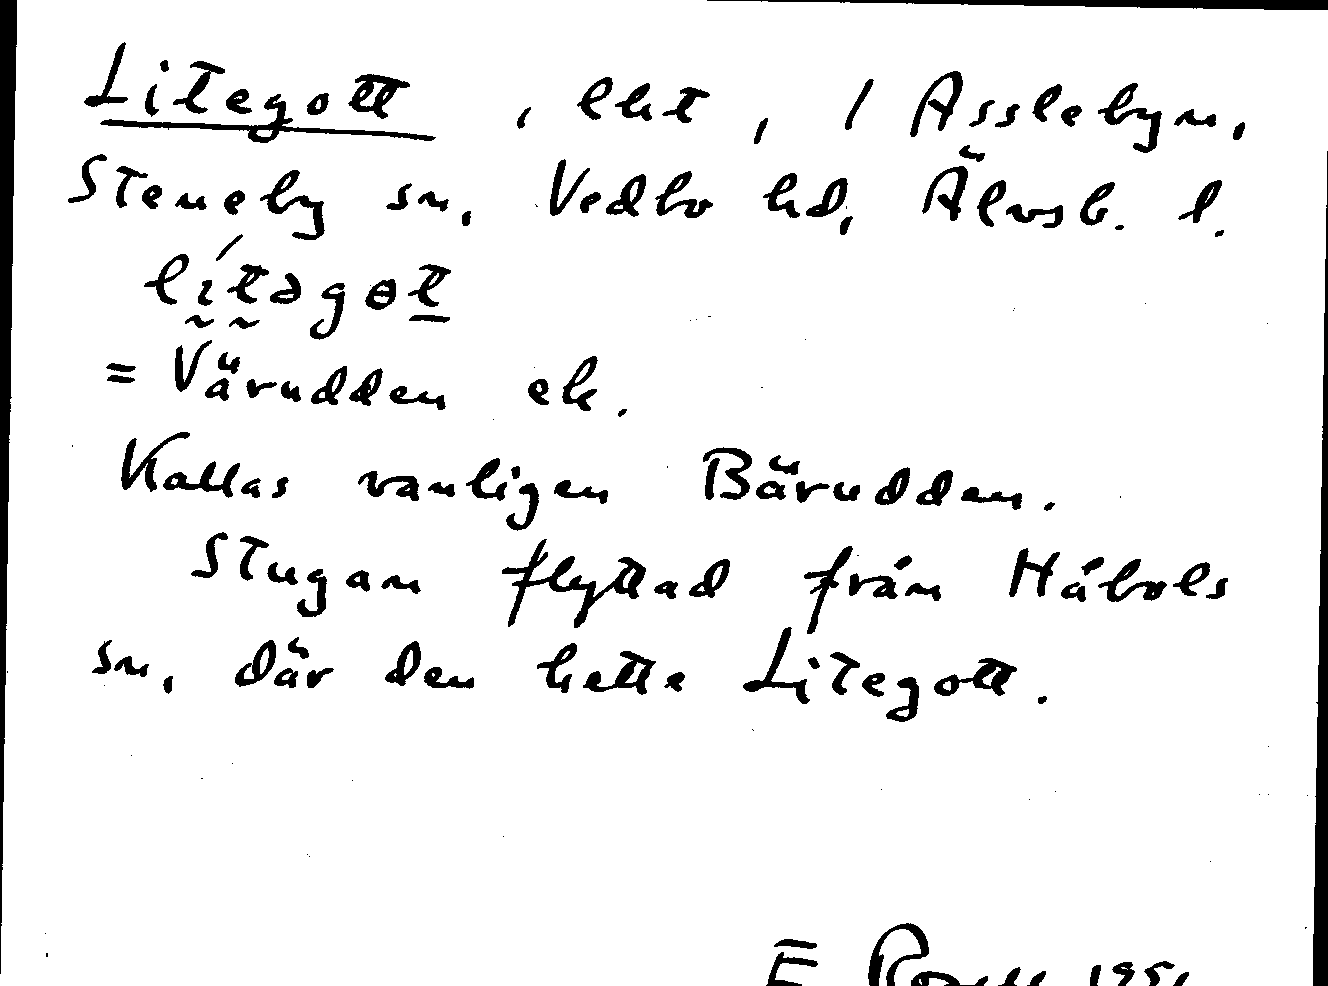 Litegott, lht, / Asslebyn,
Steneby sn, Vedbo hd, Älvsb. l.
lítəgɵt
= Värudden ek.
Kallas vanligen Bärudden.
Stugan flyttad från Håbols
sn, där den hette Litegott.
E